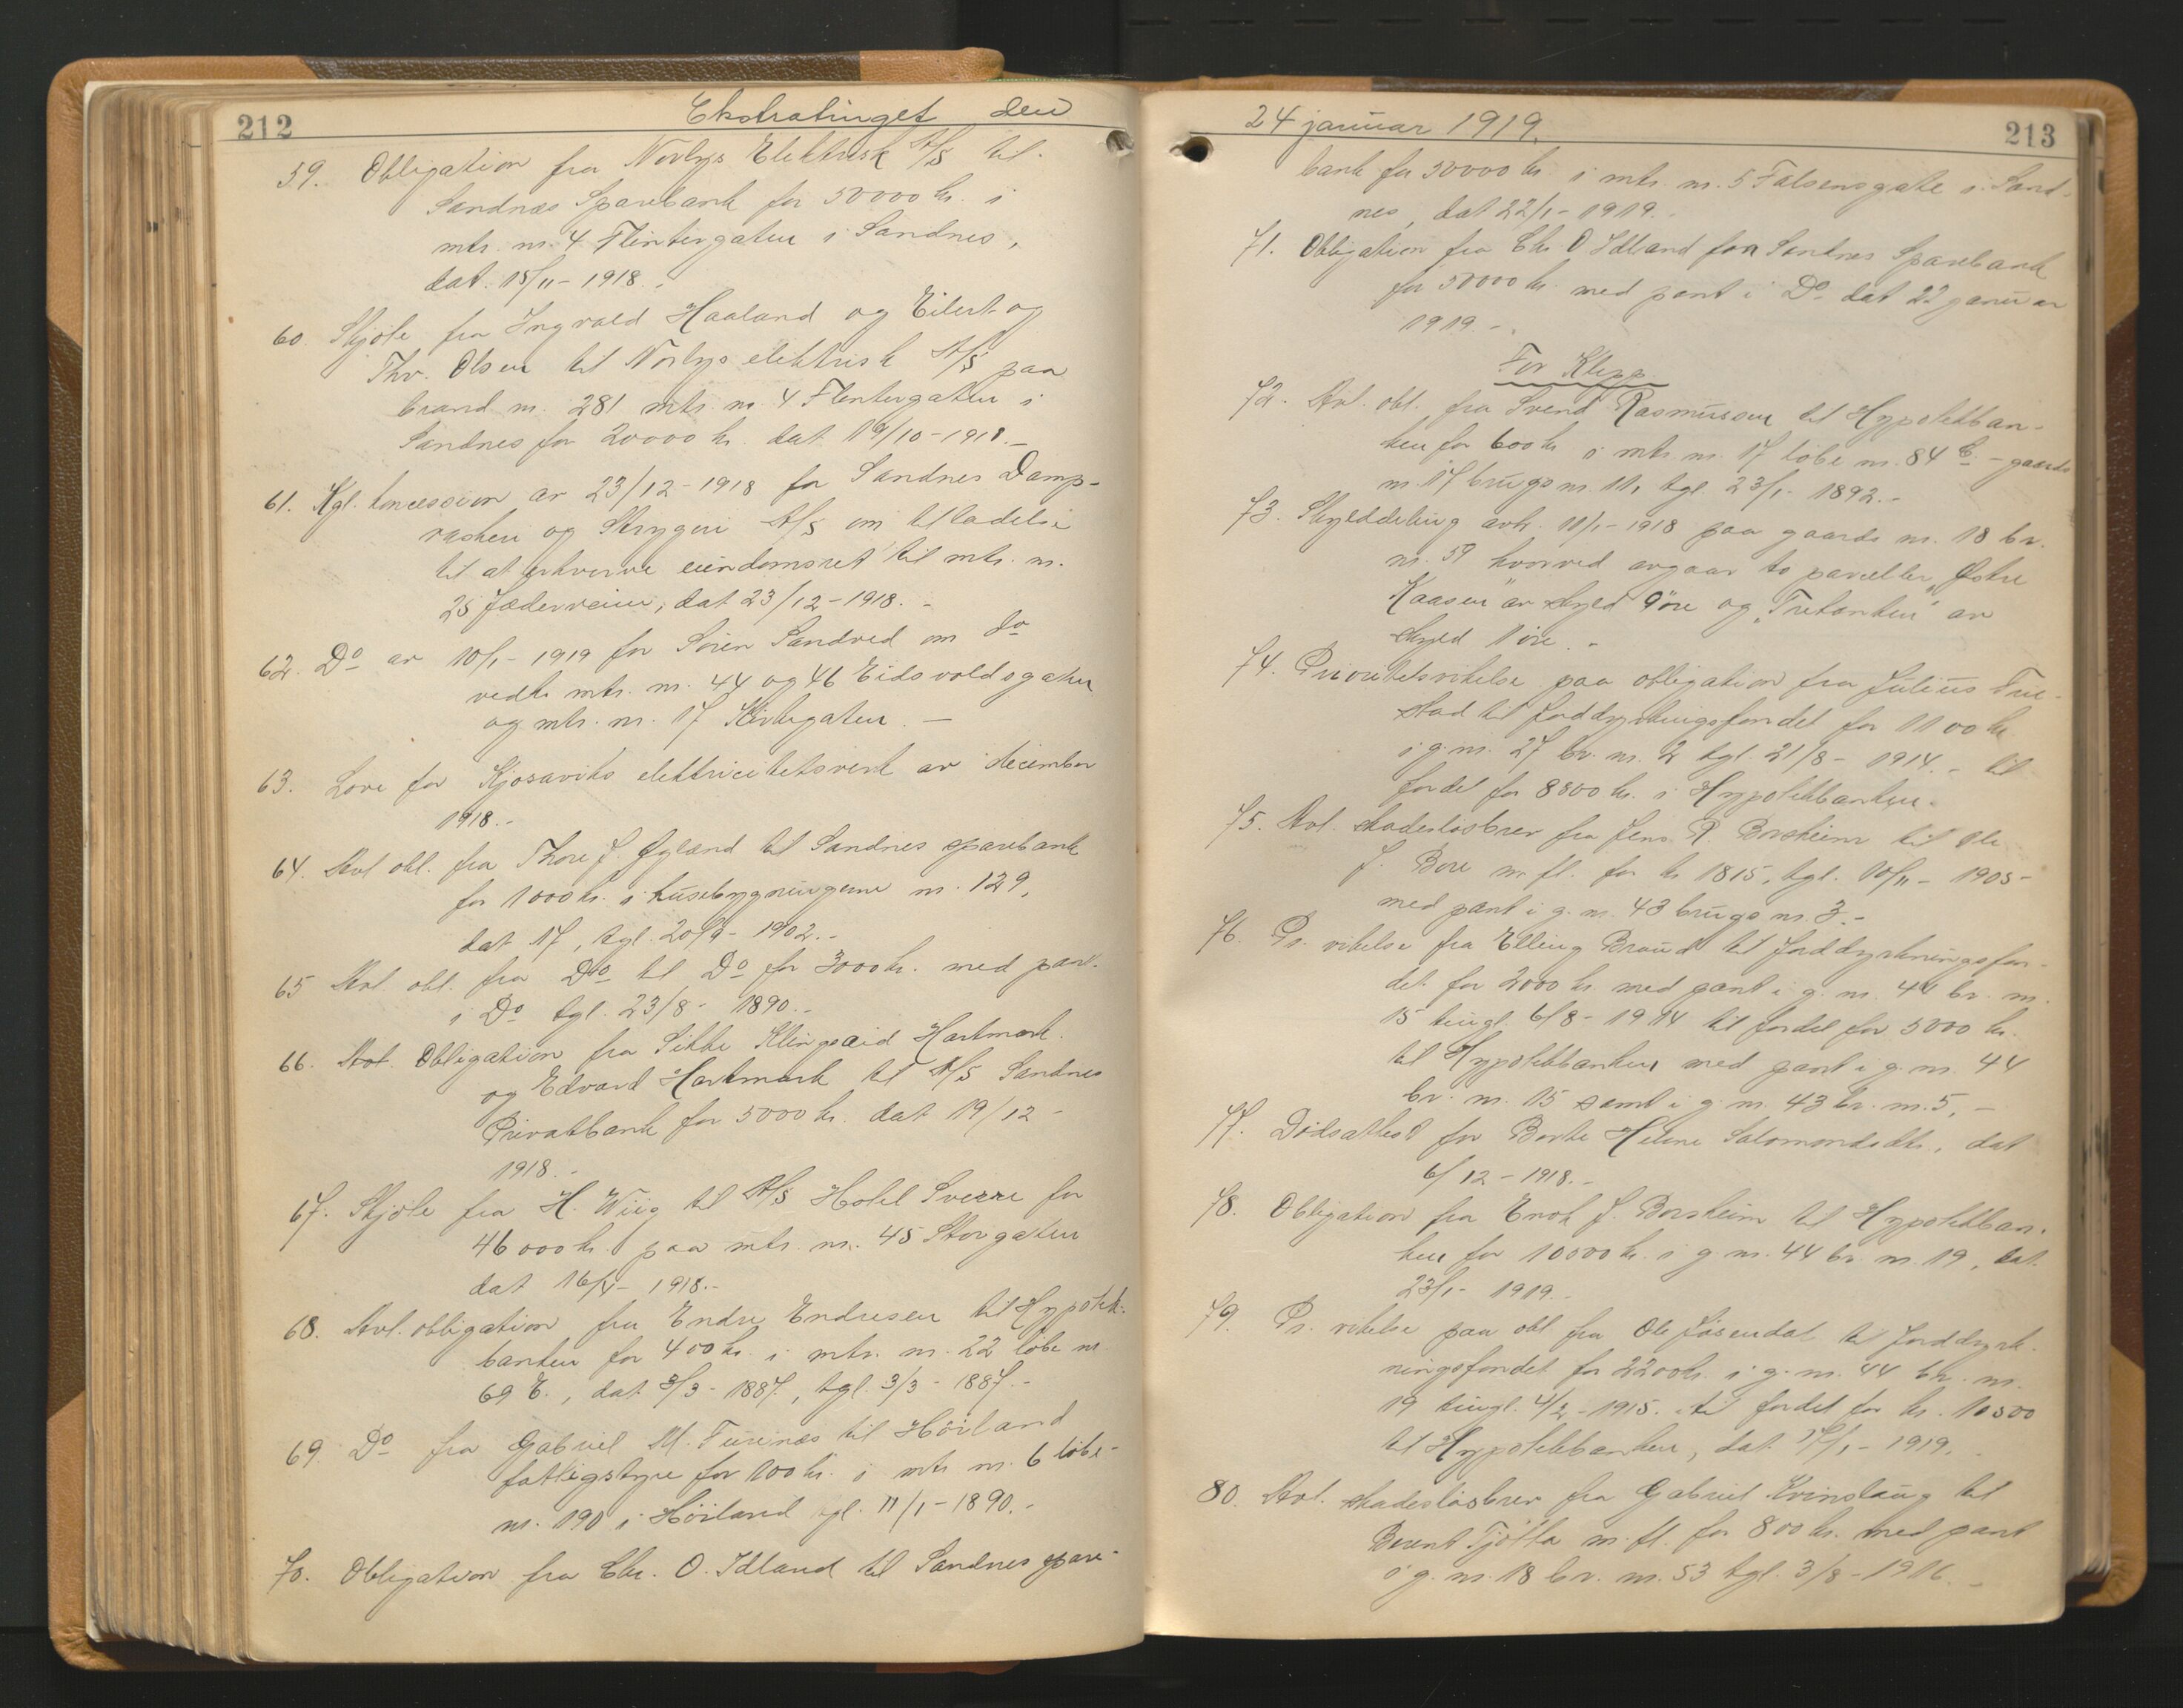 212
Ekstratinget den
59. Obligation fra Norlys Elektrisk A/S til
Sandnes Sparebank for 50000 kr. i
mtr. nr. 4 Flintergaten i Sandnes,
dat. 18/11 - 1918.
60 Skjøte fra Ingvald Haaland og Eilert og
Thv. Olsen til Norlys elektrisk A/S paa
brand nr. 281 mtr. nr. 4 Flintergaten i
Sandnes for 20000 kr. dat 19/10-1918.-
61. Kgl. koncession av 23/12-1918 for Sandnes Damp-
vaskeri og Strygeri A/S om tilladelse
til at erhverve eiendomsret til mtr. nr.
25 Jæderveien, dat 23/12-1918. -
62. Do av 10/1 - 1919 for Sören Sandved om do
vedk. mtr. nr. 44 og 46 Eidsvoldsgaten
og mtr. nr. 17 Kirkegaten. -
63. Love for Kjosaviks elektricitetsverk av december
1918.-
64. Avl obl. fra Thore J. Øgland til Sandnes sparebank
for 1000 kr. i husebygningerne nr. 129,
dat 17, tgl. 20/9 - 1902.-
65 Avl. obl. fra Do til Do for 3000 kr. med pant
i Do tgl. 23/8 - 1890.-
66. Obligation fra Sikke Klingsaid Hartmark
og Edvard Hartmark til A/S Sandnes
Privatbank for 5000 kr. dat 19/12 -
1918.-
67. Skjøte fra H. Wiig til A/S Hotel Sverre for
46000 kr. paa mtr. nr. 45 Storgaten
dat 16/4 - 1918.-
68. Avl. obligation fra Endre Endresen til Hypotek-
banken for 400 kr. i mtr. nr. 22 löbe nr
69 E., dat 3/3 - 1887, tgl. 3/3 - 1887.-
69. Do fra Gabriel M. Furenæs til Höiland
fattigstyre for 100 kr. i mtr nr. 6 löbe-
nr. 190 i Höiland tgl. 11/1 - 1890.-
70. Obligation fra Chr. O. Idland til Sandnes spare-
24 januar 1919.
213
bank for 50000 kr i mtr. nr. 5 Falsensgate i Sand-
nes, dat 22/1 - 1919.
71. Obligation fra Chr O Idland for Sandnes Sparebank
for 50000 kr. med pant i Do dat 22 januar
1919.-
For Klepp
72. Avl. obl. fra Svend Rasmussen til Hypotekban-
ken for 600 kr i mtr. nr. 17 löbe nr. 84 b. - gaards
nr. 17 brugs nr. 11, tgl 23/1 - 1892.-
73. Skylddeling avh. 11/1-1918 paa gaards nr. 18 br.
nr. 59 hvorved avgaar to parceller, „Østre
Kaasen" av skyld 9 øre og „Tretanken" av
skyld 1 øre. -
74. Prioritetsvikelse paa obligation fra Julius Tue-
stad til Jorddyrkningsfondet for 1100 kr.
i g. nr. 27 br. nr. 2 tgl. 21/8 - 1914 - til
fordel for 8800 kr. i Hypotekbanken.
75. Avl. skadeslösbrev fra Jens R. Borsheim til Ole
J. Bore m. fl. for kr 1815, tgl. 10/11 - 1905 -
med pant i g. nr. 43 brugs nr. 3.-
76. Pr. vikelse fra Elling Braud til Jorddyrkningsfon-
det for 2000 kr. med pant i g. nr. 44 br. nr.
15 tingl. 6/8 - 1914 til fordel for 5000 kr.
til Hypotekbanken med pant i g. nr. 44
br. nr. 15 samt i g. nr. 43 br. nr. 5. -
77. Dödsattest for Borte Helene Salomonsdtr., dat
6/12 - 1918.-
78. Obligation fra Enok J. Borsheim til Hypotekban-
ken for 10500 kr. i g. nr. 44 br. nr. 19, dat.
23/1 - 1919.-
79. Pr. vikelse paa obl fra Ole Jösendal til Jorddyrk-
ningsfondet for 2200 kr. i g. nr. 44 br. nr.
19 tingl. 4/2 - 1915. til fordel for kr. 10500
til Hypotekbanken, dat. 17/1 - 1919.
80. Avl. skadeslösbrev fra Gabriel Kvinslaug til
Berent Tjötta m. fl. for 800 kr. med pant
i g. nr. 18 br. nr. 53 tgl. 3/8 - 1916. -